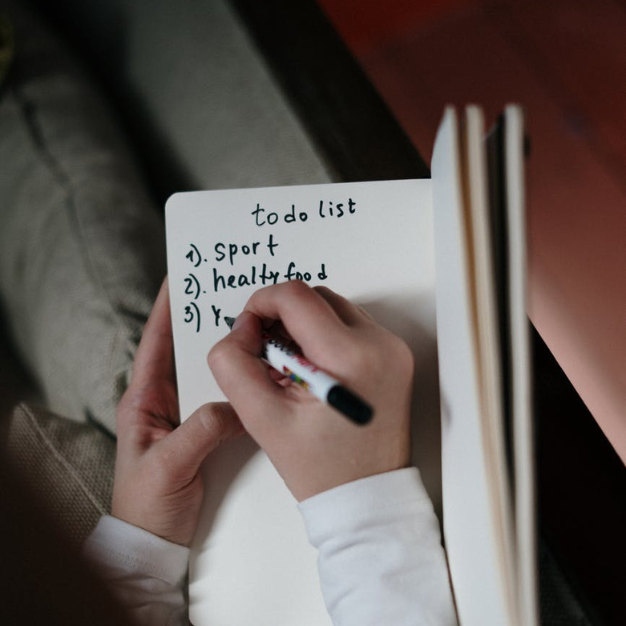 to do list
1). sport
2). healty food
3)